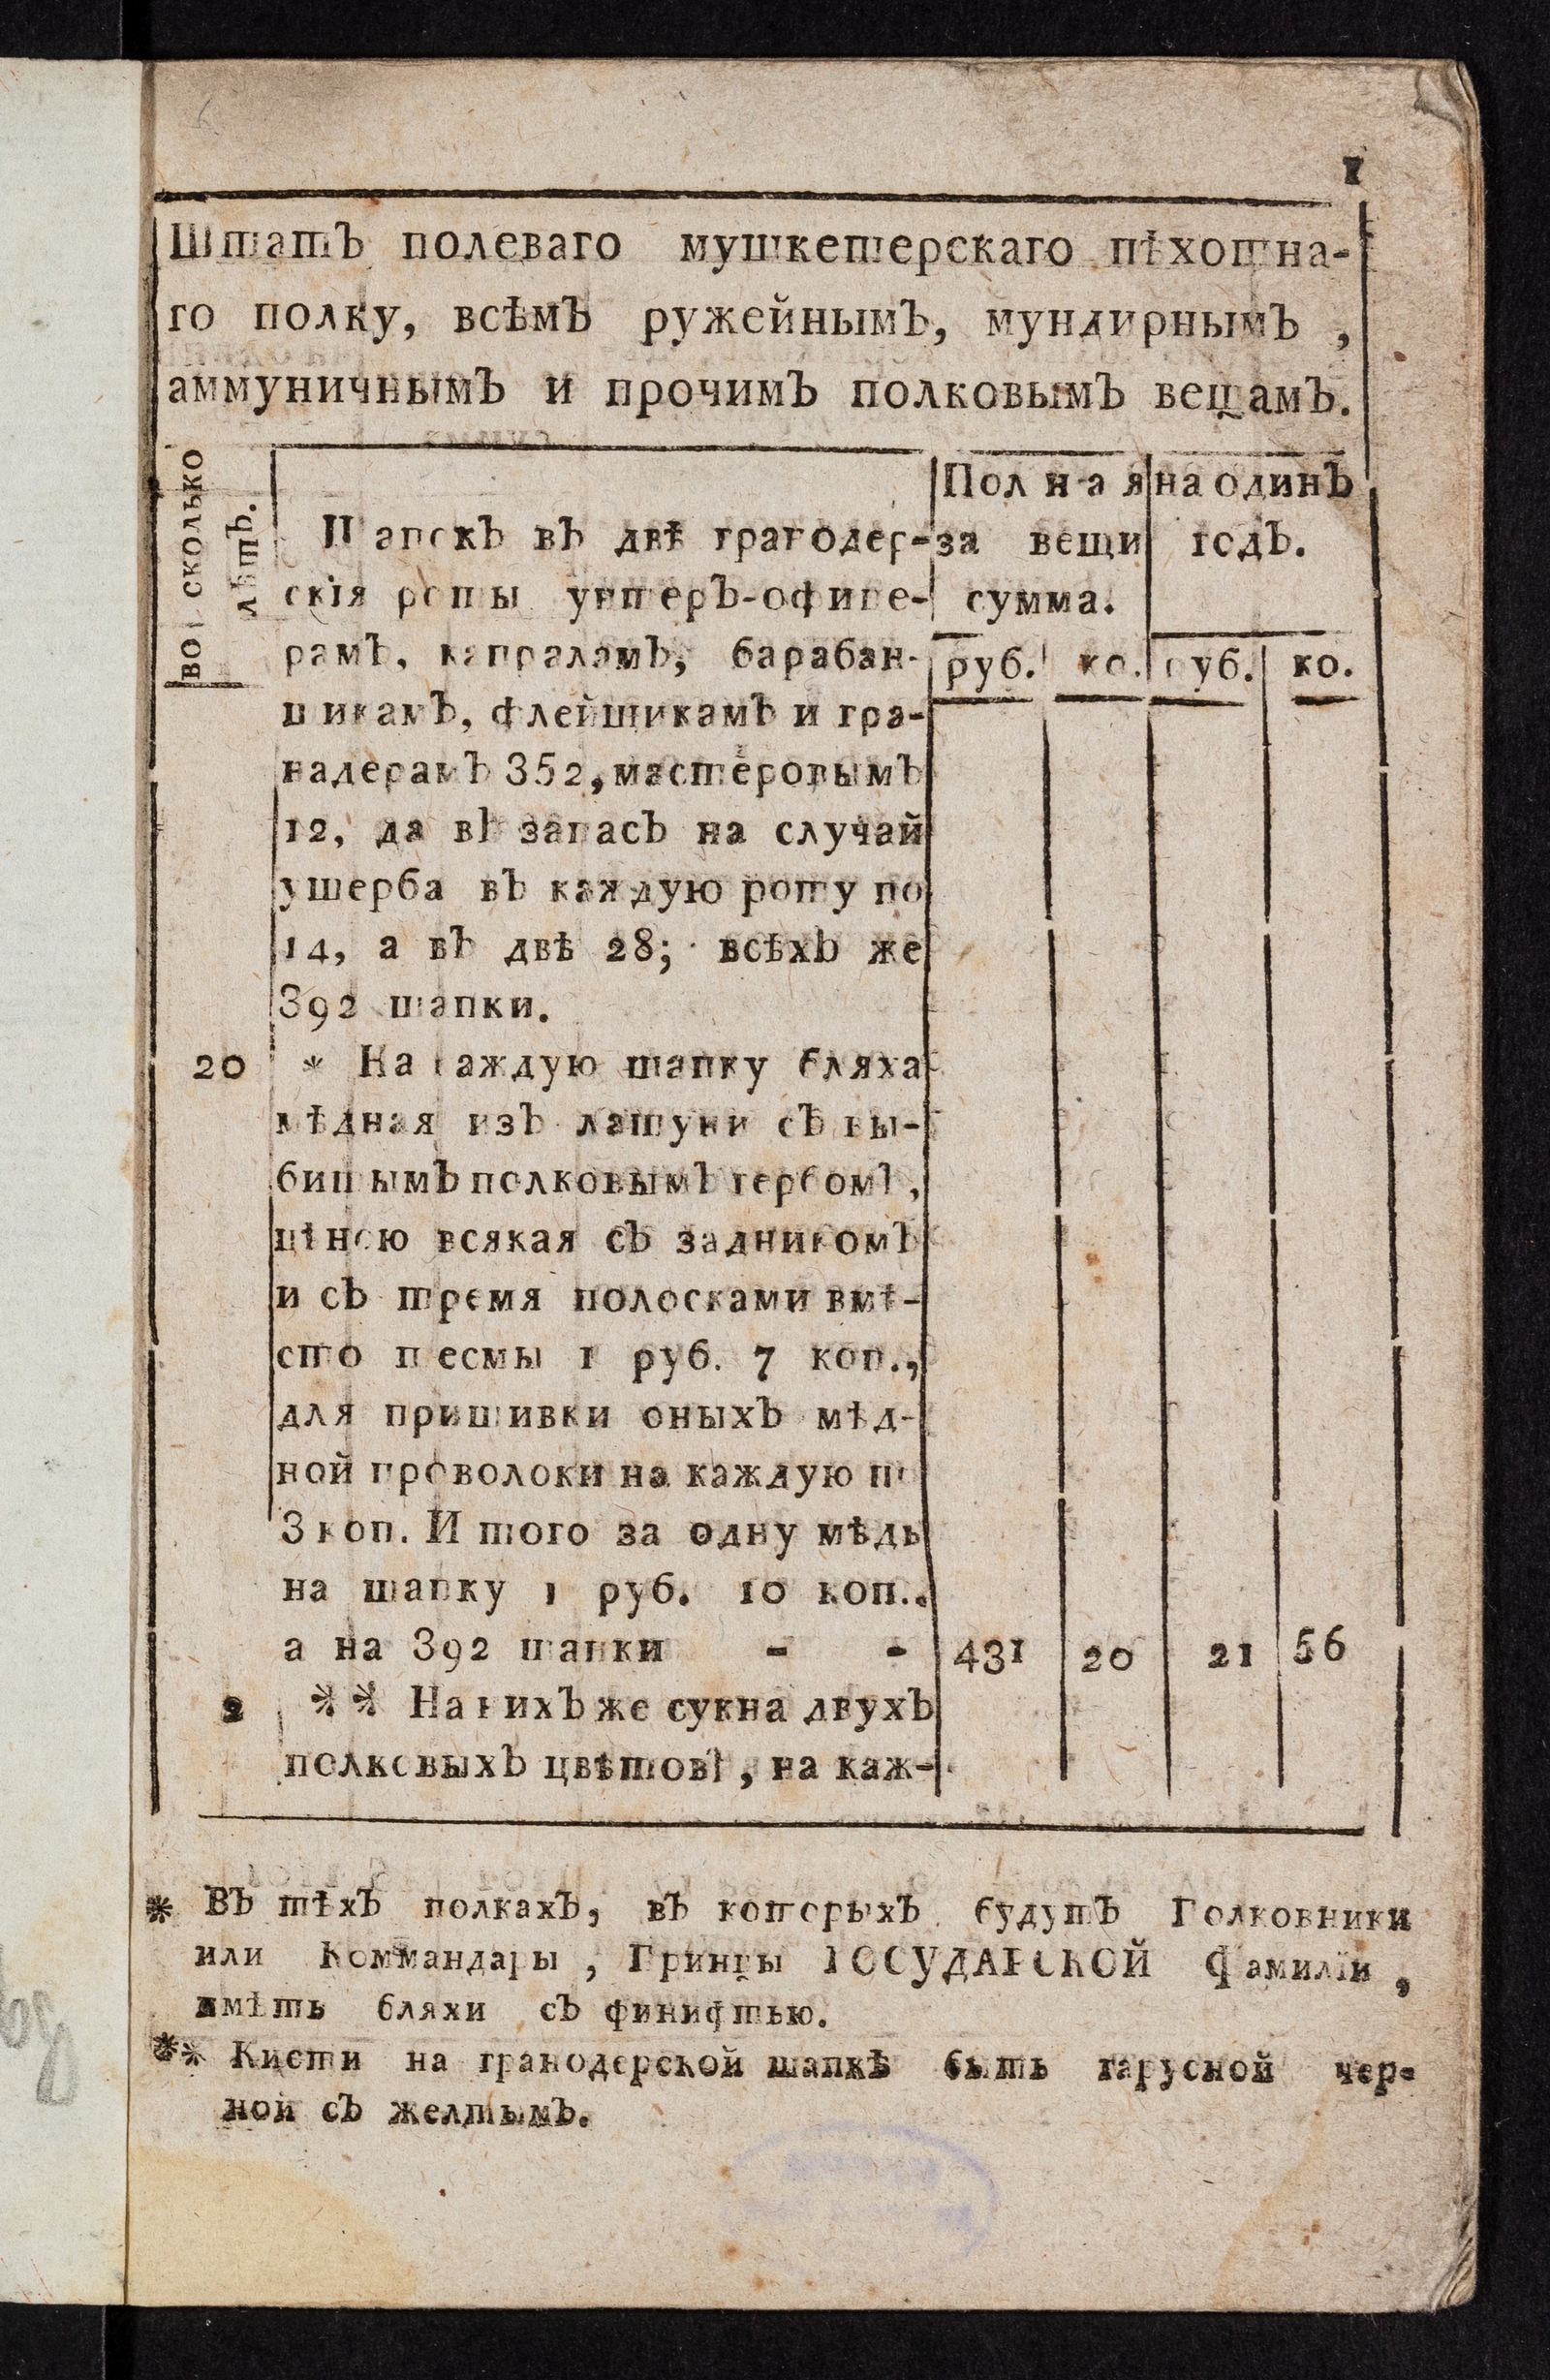 1
Штатъ полеваго мушкетерскаго пѣхотна-
го полку, всѣмъ ружейнымъ, мундирнымъ,
аммуничнымъ и прочимъ полковымъ вещамъ.
во сколько
лѣтъ.
Полная на одинъ
Шапокъ въ двѣ гранодер- за вещи годъ.
скія роты унтеръ-офице- сумма.
рамъ, капраламъ, барабан- руб. ко. руб. ко.
щикамъ, флейщикамъ и гра-
надерамъ 352, мастеровымъ
12, да въ запасъ на случай
ущерба въ каждую роту по
14, а въ двѣ 28; всѣхъ же
392 шапки.
20 * На каждую шапку бляха
мѣдная изъ латуни съ вы-
битымъ полковымъ гербомъ,
цѣною всякая съ задникомъ
и съ тремя полосками вмѣ-
сто тесмы 1 руб. 7 коп.,
для пришивки оныхъ мѣд-
ной проволоки на каждую по
3 коп. Итого за одну мѣдь
на шапку 1 руб. 10 коп.,
а на 392 шапки - - 431 20 21 56
2 ** На нихъ же сукна двухъ
полковыхъ цвѣтовъ, на каж-
* Въ тѣхъ полкахъ, въ которыхъ будутъ Полковники
или Коммандары, Принцы ГОСУДАРСКОЙ Фамиліи,
имѣть бляхи съ финифтью.
** Кисти на гранодерской шапкѣ быть гарусной чер-
ной съ желтымъ.